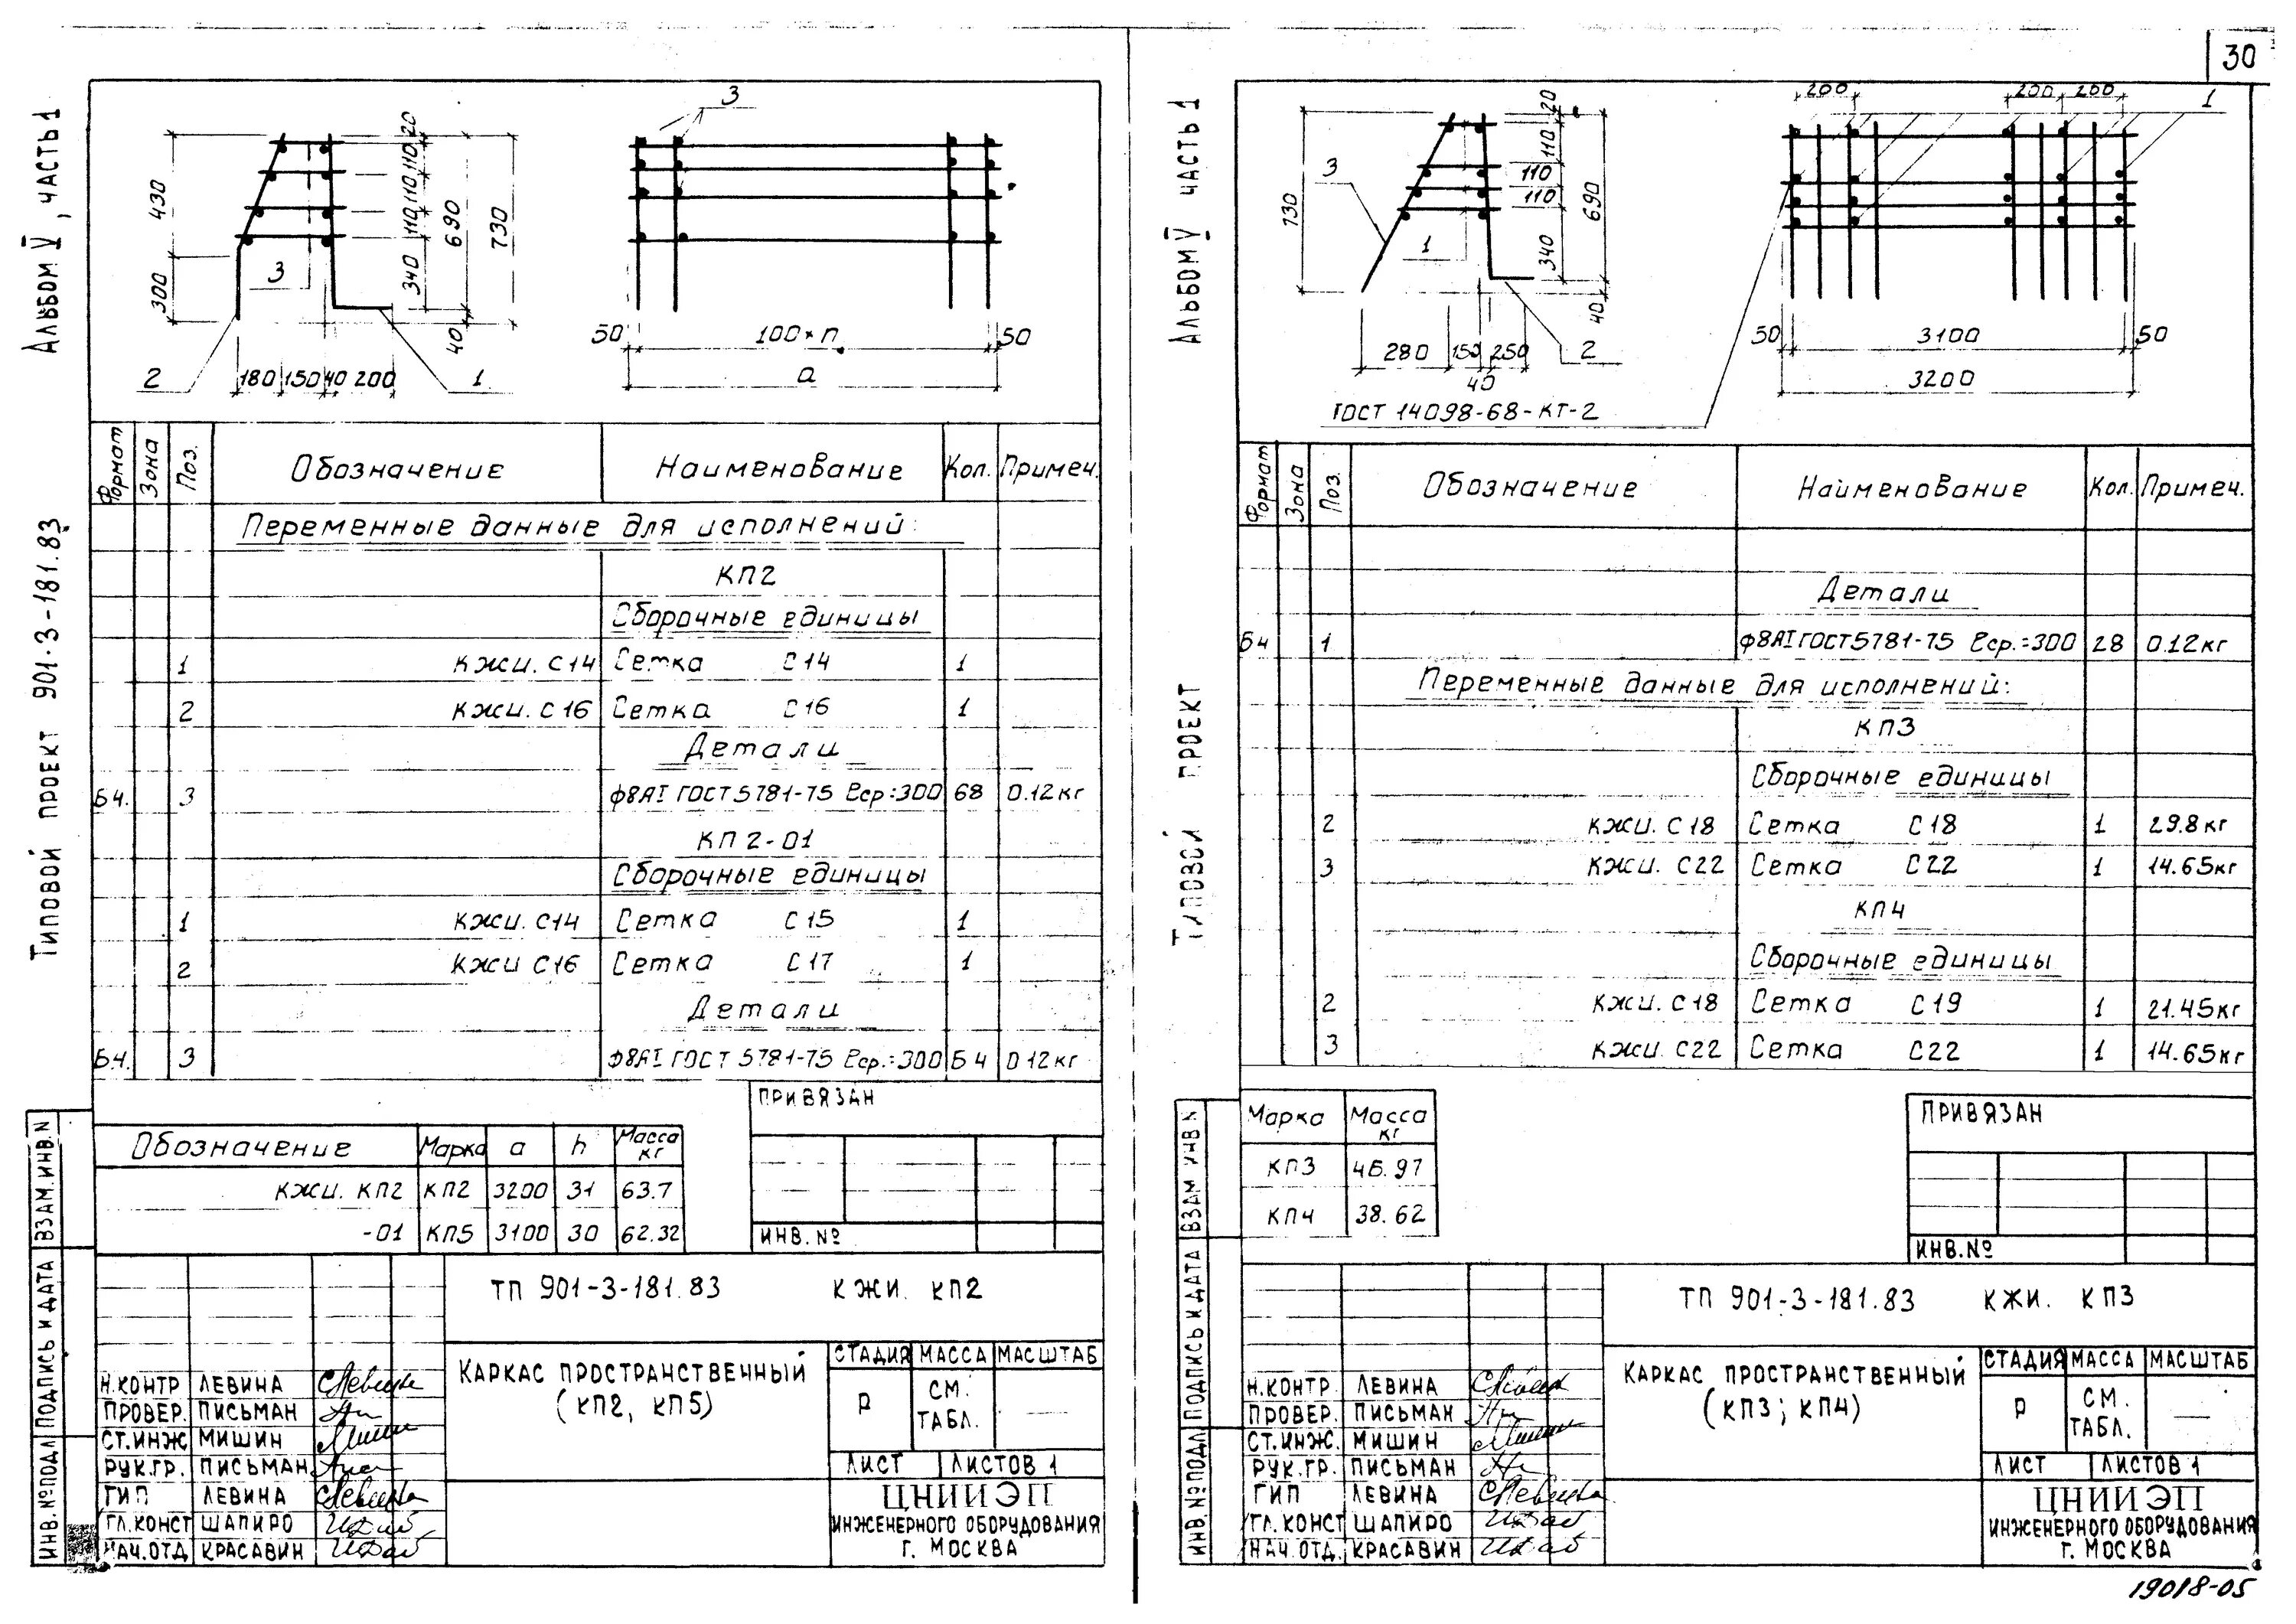 30
Альбом V, часть 1
Типовой проект 901-3-181.83
3
430
300
20
110
110
110
340
690
730
40
3
2
180 150 40 200
1
50
100×n
50
а
Формат
Зона
Поз.
Обозначение
Наименование
Кол.
Примеч.
Переменные данные для исполнений:
КП2
Сборочные единицы
1 КЖИ. С14 Сетка С14 1
2 КЖИ. С16 Сетка С16 1
Детали
Б4. 3 ф8АI ГОСТ 5781-75 ℓср.=300 68 0.12кг
КП2-01
Сборочные единицы
1 КЖИ. С14 Сетка С15 1
2 КЖИ С16 Сетка С17 1
Детали
Б4. 3 ф8АI ГОСТ 5781-75 ℓср.=300 Б4 0.12кг
ПРИВЯЗАН
ИНВ. №
Обозначение Марка а h Масса кг
КЖИ. КП2 КП2 3200 31 63.7
-01 КП5 3100 30 62.32
ТП 901-3-181.83 КЖИ. КП2
КАРКАС ПРОСТРАНСТВЕННЫЙ
(КП2, КП5)
СТАДИЯ МАССА МАСШТАБ
Р СМ. ТАБЛ. —
ЛИСТ ЛИСТОВ 1
ЦНИИЭП
ИНЖЕНЕРНОГО ОБОРУДОВАНИЯ
Г. МОСКВА
Н.КОНТР ЛЕВИНА
ПРОВЕР. ПИСЬМАН
СТ.ИНЖ МИШИН
РУК.ГР. ПИСЬМАН
ГИП ЛЕВИНА
ГЛ.КОНСТ ШАПИРО
НАЧ.ОТД КРАСАВИН
ИНВ.№ПОДЛ
ПОДПИСЬ И ДАТА
ВЗАМ.ИНВ.N
Альбом V часть 1
Типовой проект
730
3
1
20
110
110
110
340
690
40
280 150 250
40
2
ГОСТ 14098-68-КТ-2
200
200 200
1
50
3100
50
3200
Формат
Зона
Поз.
Обозначение
Наименование
Кол.
Примеч.
Детали
Б4 1 ф8АI ГОСТ 5781-75 ℓср.=300 28 0.12кг
Переменные данные для исполнений:
КП3
Сборочные единицы
2 КЖИ. С18 Сетка С18 1 29.8кг
3 КЖИ. С22 Сетка С22 1 14.65кг
КП4
Сборочные единицы
2 КЖИ. С18 Сетка С19 1 21.45кг
3 КЖИ. С22 Сетка С22 1 14.65кг
Марка Масса кг
КП3 46.97
КП4 38.62
ПРИВЯЗАН
ИНВ.№
ТП 901-3-181.83 КЖИ. КП3
КАРКАС ПРОСТРАНСТВЕННЫЙ
(КП3; КП4)
СТАДИЯ МАССА МАСШТАБ
Р СМ. ТАБЛ. —
ЛИСТ ЛИСТОВ 1
ЦНИИЭП
ИНЖЕНЕРНОГО ОБОРУДОВАНИЯ
Г. МОСКВА
Н.КОНТР. ЛЕВИНА
ПРОВЕР. ПИСЬМАН
СТ.ИНЖ. МИШИН
РУК.ГР. ПИСЬМАН
ГИП ЛЕВИНА
ГЛ.КОНСТ ШАПИРО
НАЧ.ОТД. КРАСАВИН
ИНВ.№ПОДЛ
ПОДПИСЬ И ДАТА
ВЗАМ ИНВ.N
19018-05